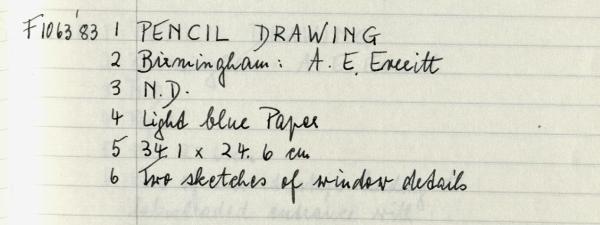 F1063'83 1 PENCIL DRAWING
2 Birmingham: A. E. Everitt
3 N.D.
4 Light blue Paper
5 34.1 x 24.6 cm
6 Two sketches of window details